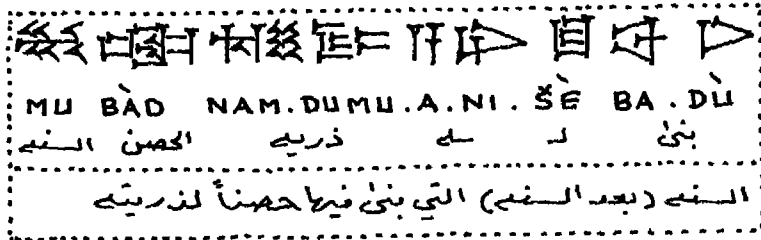 MU BÀD NAM.DUMU.A.NI.ŠÈ BA.DÙ
بنى لـ ـه ذريه الحصن السنه
السنه (بعد السنه) التي بنى فيها حصناً لذريته